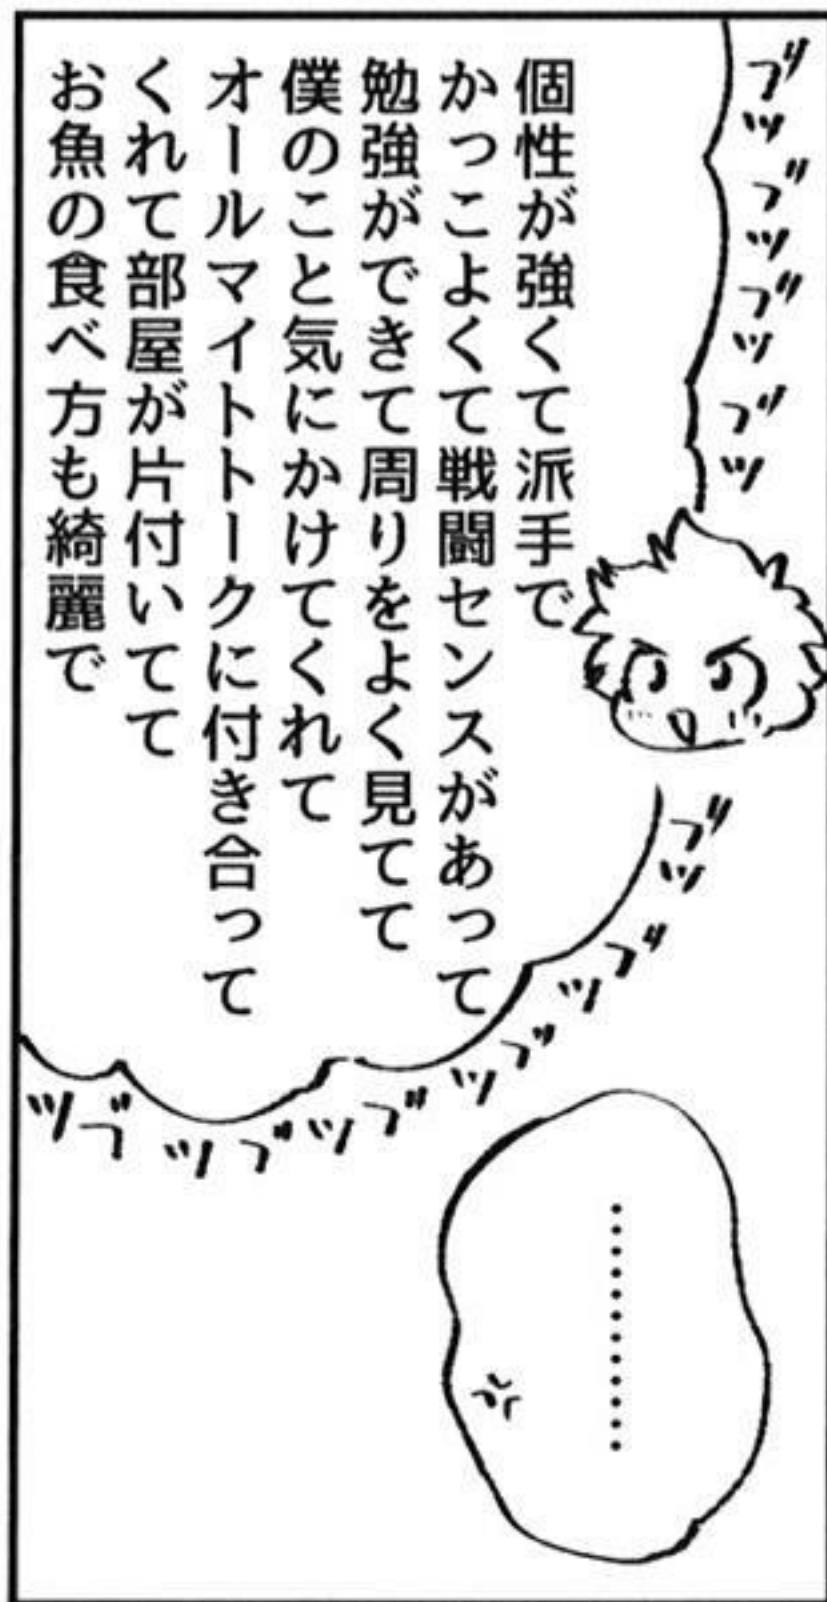 個性が強くて派手で
かっこよくて戦闘センスがあって
勉強ができて周りをよく見てて
僕のこと気にかけてくれて
オールマイトトークに付き合って
くれて部屋が片付いてて
お魚の食べ方も綺麗で
ブツブツブツブツ
ブツブツブツブツブツブツ
…………